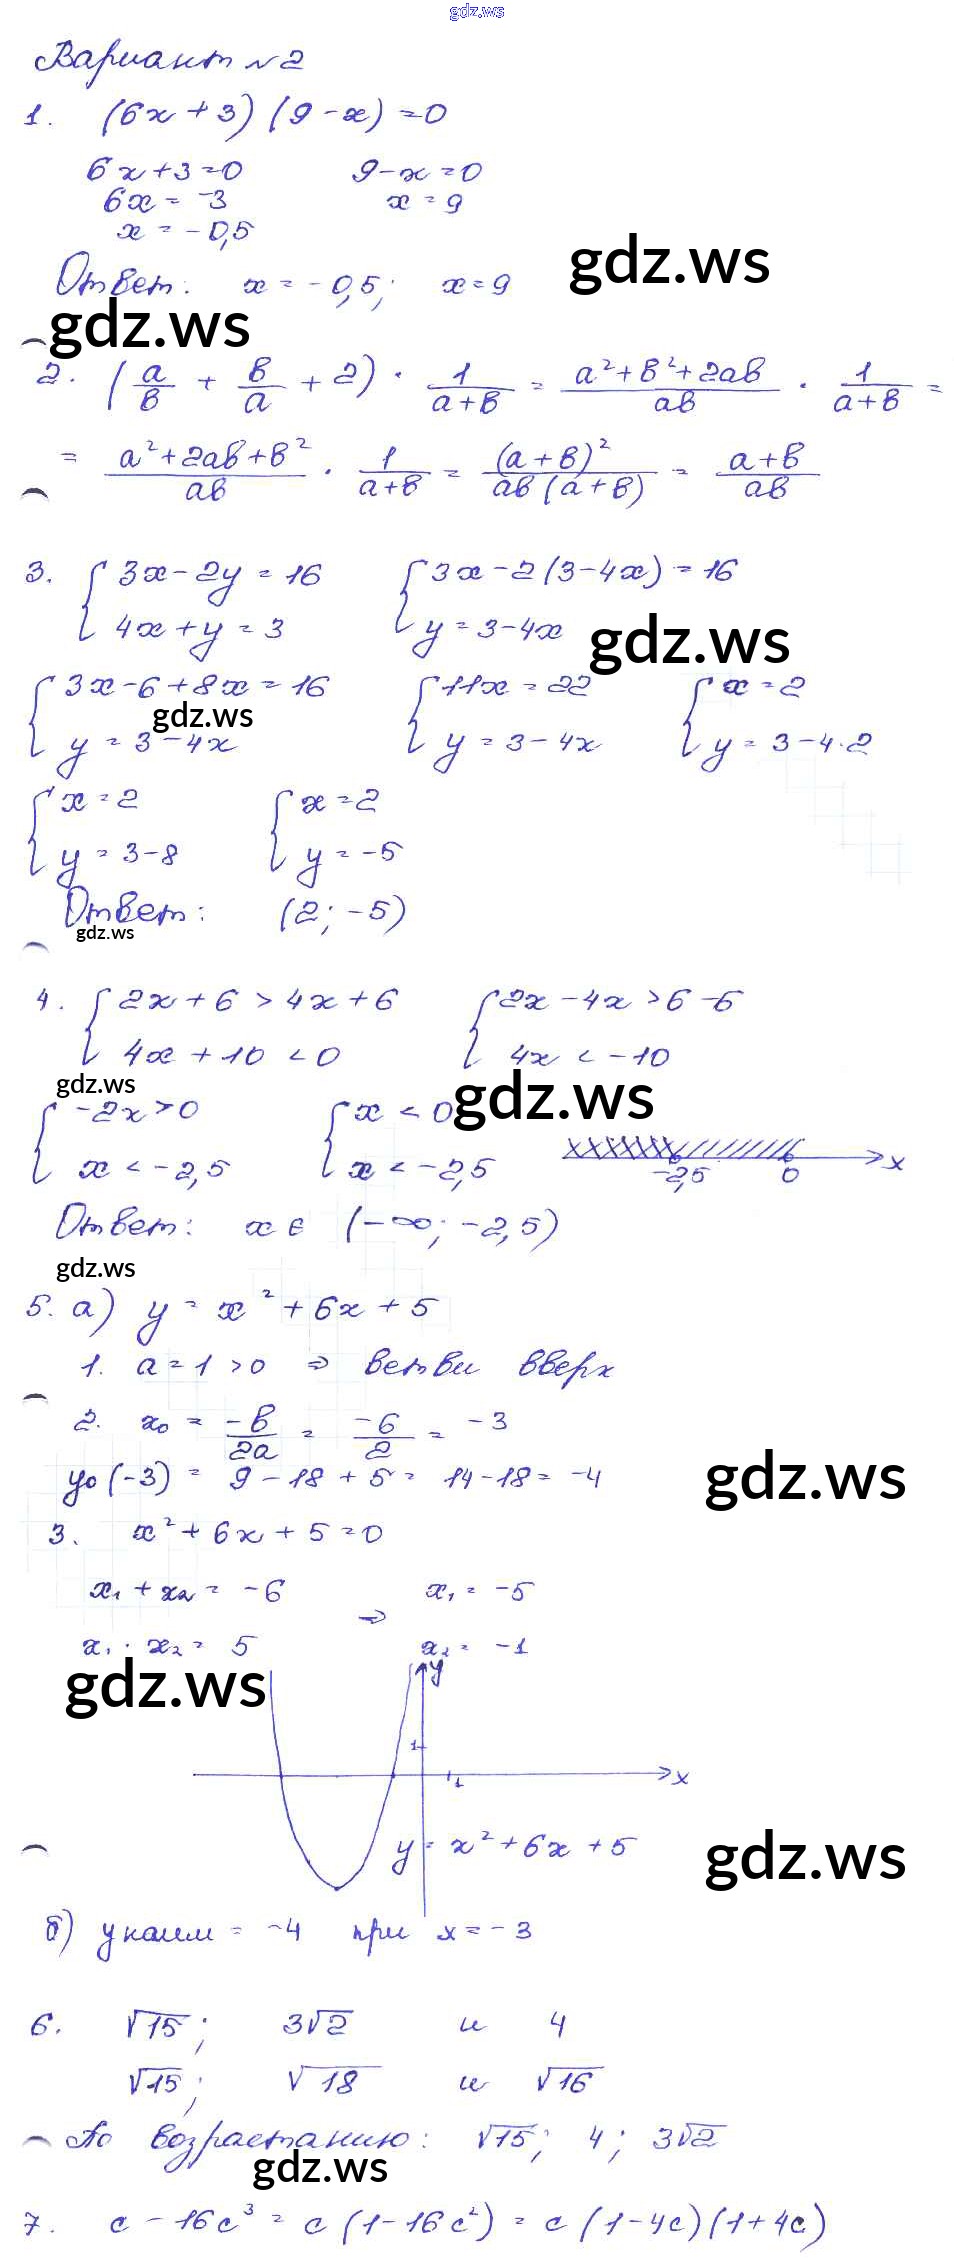 gdz.ws
Вариант №2
1. (6x + 3)(9 - x) = 0
6x + 3 = 0 9 - x = 0
6x = -3 x = 9
x = -0,5
gdz.ws
Ответ: x = -0,5; x = 9
gdz.ws
2. (a/b + b/a + 2) · 1/(a+b) = (a² + b² + 2ab)/(ab) · 1/(a+b) =
= (a² + 2ab + b²)/(ab) · 1/(a+b) = (a+b)²/(ab(a+b)) = (a+b)/(ab)
3. { 3x - 2y = 16 { 3x - 2(3 - 4x) = 16
4x + y = 3 y = 3 - 4x
gdz.ws
{ 3x - 6 + 8x = 16 { 11x = 22 { x = 2
gdz.ws
y = 3 - 4x y = 3 - 4x y = 3 - 4·2
{ x = 2 { x = 2
y = 3 - 8 y = -5
Ответ: (2; -5)
gdz.ws
4. { 2x + 6 > 4x + 6 { 2x - 4x > 6 - 6
4x + 10 < 0 4x < -10
gdz.ws
gdz.ws
{ -2x > 0 { x < 0
x < -2,5 x < -2,5 -2,5 0 x
Ответ: x ∈ (-∞; -2,5)
gdz.ws
5. а) y = x² + 6x + 5
1. a = 1 > 0 ⇒ ветви вверх
2. x₀ = -b/2a = -6/2 = -3
y₀(-3) = 9 - 18 + 5 = 14 - 18 = -4
gdz.ws
3. x² + 6x + 5 = 0
x₁ + x₂ = -6 x₁ = -5
⇒
x₁ · x₂ = 5 x₂ = -1
gdz.ws
y
1
1 x
y = x² + 6x + 5
gdz.ws
б) y наим = -4 при x = -3
6. √15; 3√2 и 4
√15; √18 и √16
По возрастанию: √15; 4; 3√2
gdz.ws
7. c - 16c³ = c(1 - 16c²) = c(1 - 4c)(1 + 4c)